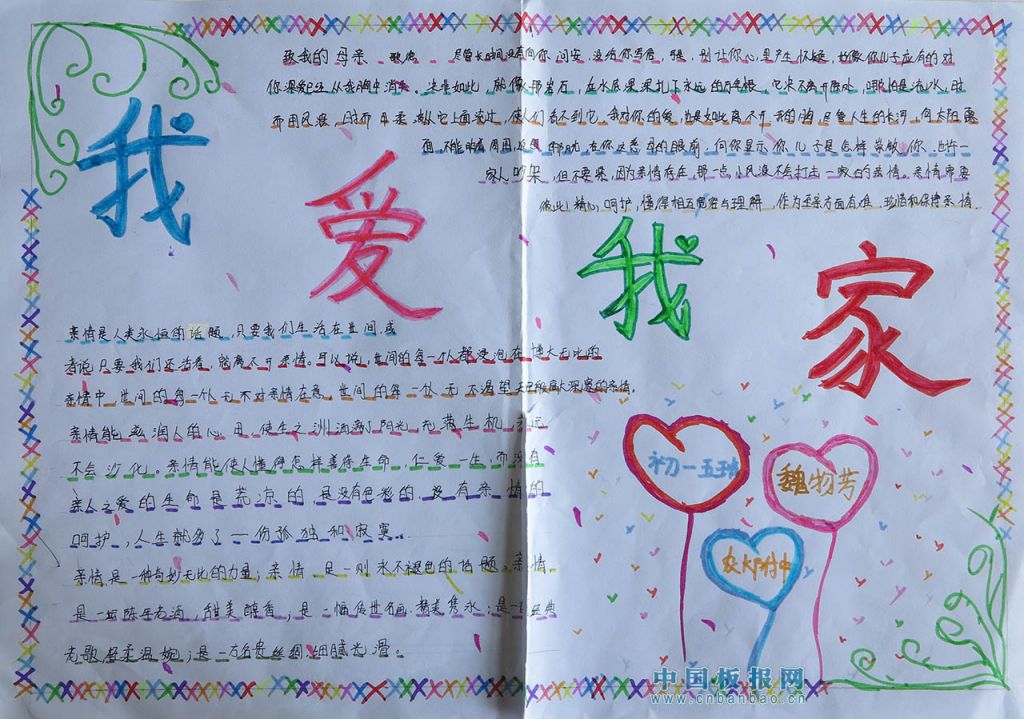 致我的母亲 歌德 尽管长时间没有向你问安,没给你写信,可是,别让你心里产生怀疑,好像你儿子应有的对
你深爱已经从我胸中消失。决非如此,就像那岩石,在水底深深扎下永远的万年根,它决不离开原处,哪怕是流水,时
而用风浪,时而用柔波从它上面流过,使人们看不到它,我对你的爱,也是如此离不开我的胸,尽管人生的长河,
在你这慈母的眼前,向你显示你儿子是怎样崇敬你。也许一
家人吵架,但不要紧,因为亲情存在,那一点小风浪不会打击一家的亲情。亲情需要
彼此精心呵护,懂得相互宽容与理解,作为至亲方面有难,珍惜和保持亲情
我爱我家
亲情是人类永恒的话题,只要我们生活在世间,或
者说只要我们还活着,就离不开亲情。可以说,世间的每一个人都浸泡在博大无比的
亲情中,世间的每一个人无不对亲情在意,世间的每一个人无不渴望无比博大深厚的亲情。
亲情能滋润人的心田,使生之洲洒满阳光,充满生机,永远
不会沙化。亲情能使人懂得怎样善待生命,仁爱一生,而没有
亲人之爱的生命是荒凉的,是没有色彩的,没有亲情的
呵护,人生就多了一份孤独和寂寞..
亲情是一种奇妙无比的力量;亲情,是一则永不褪色的话题。亲情,
是一坛陈年老酒,甜美醇香;是一幅传世名画,精美隽永;是一首经典
老歌,轻柔温婉;是一方名贵丝绸,细腻光滑。
初一五班
魏物芳
农大附中
中国板报网
www.cnbanbao.cn